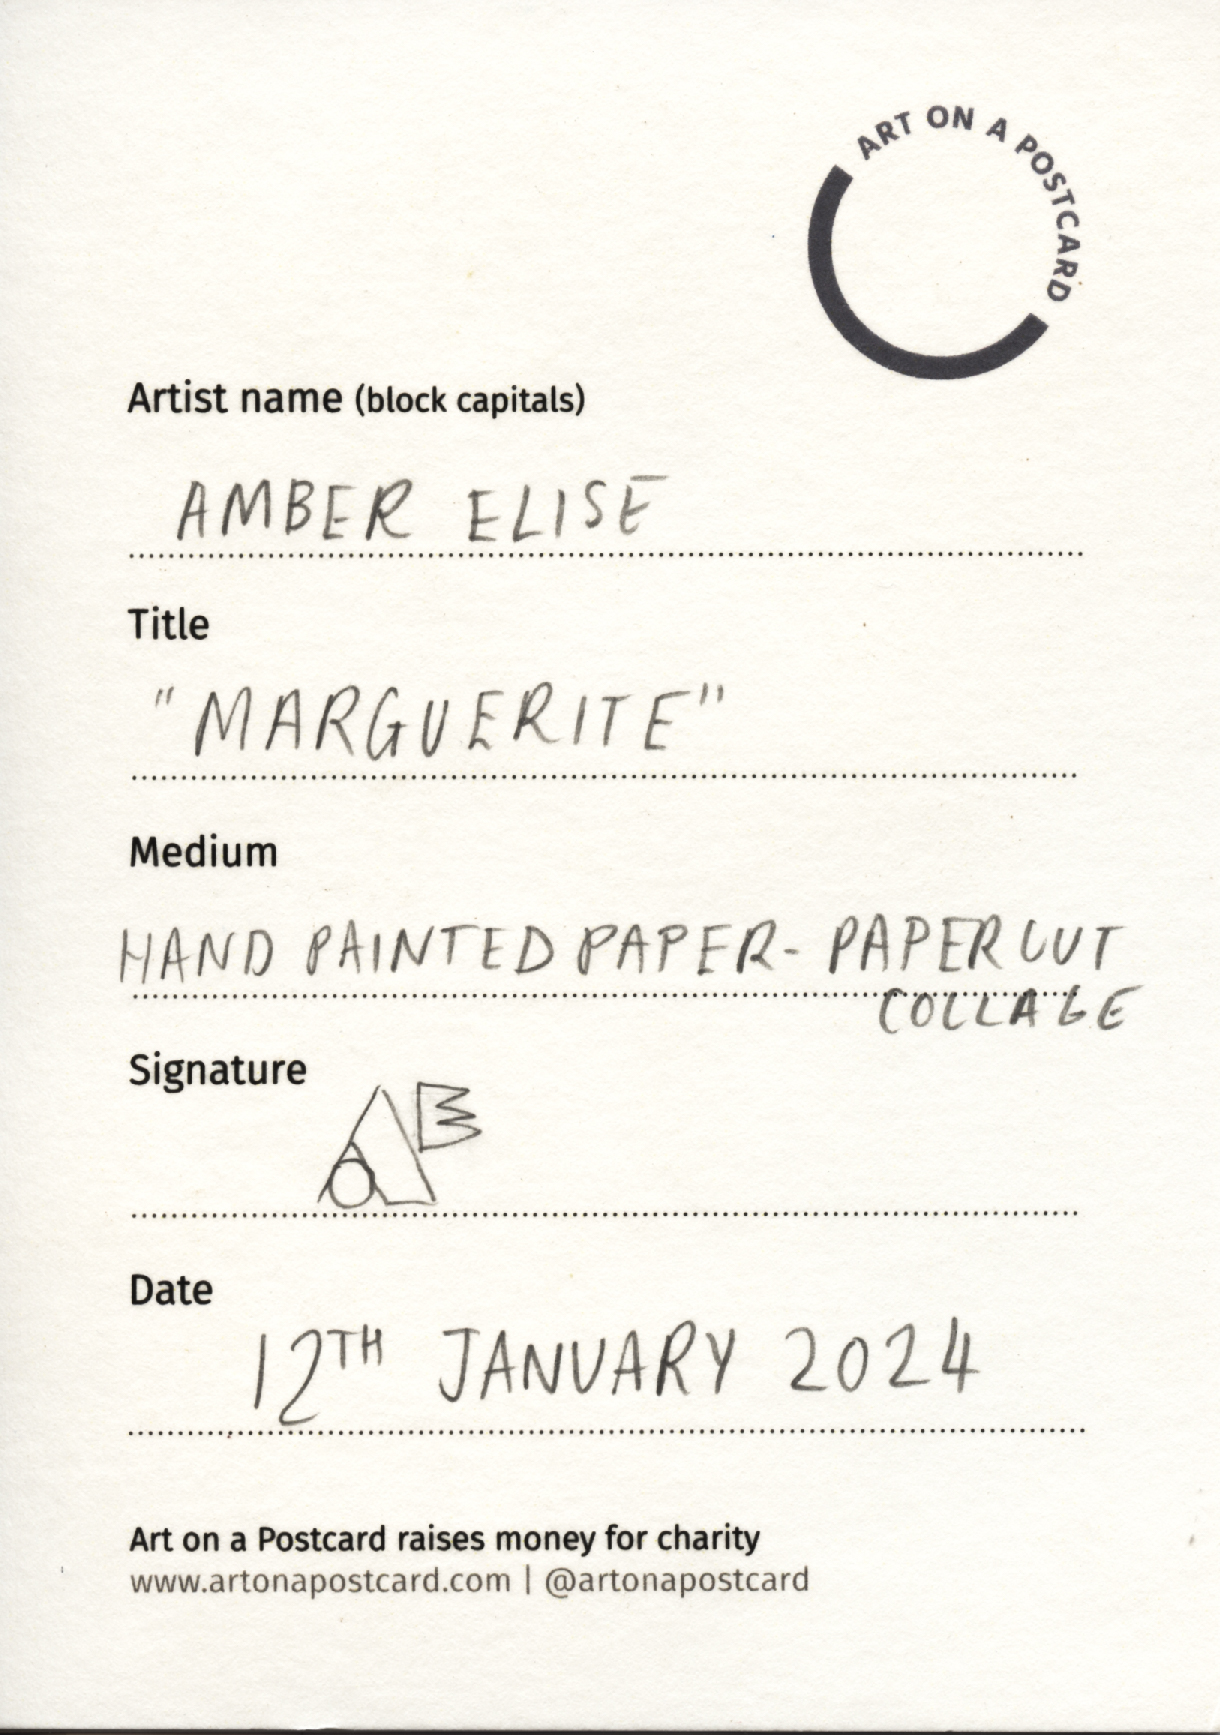 ART ON A POSTCARD
Artist name (block capitals)
AMBER ELISE
Title
"MARGUERITE"
Medium
HAND PAINTED PAPER- PAPERCUT
COLLAGE
Signature
Date
12TH JANUARY 2024
Art on a Postcard raises money for charity
www.artonapostcard.com | @artonapostcard